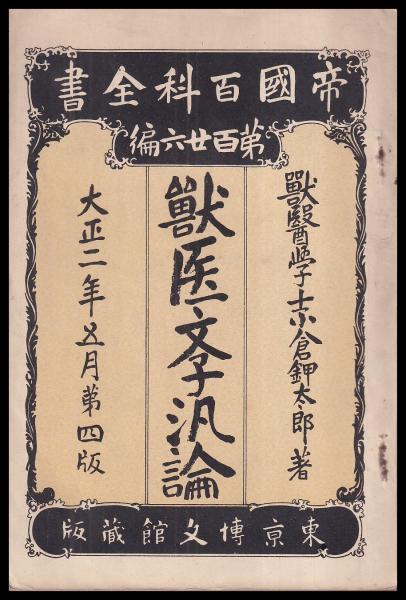 帝國百科全書
第百廿六編
獸醫學士小倉鉀太郎著
獸医学汎論
大正二年五月第四版
東京博文館藏版